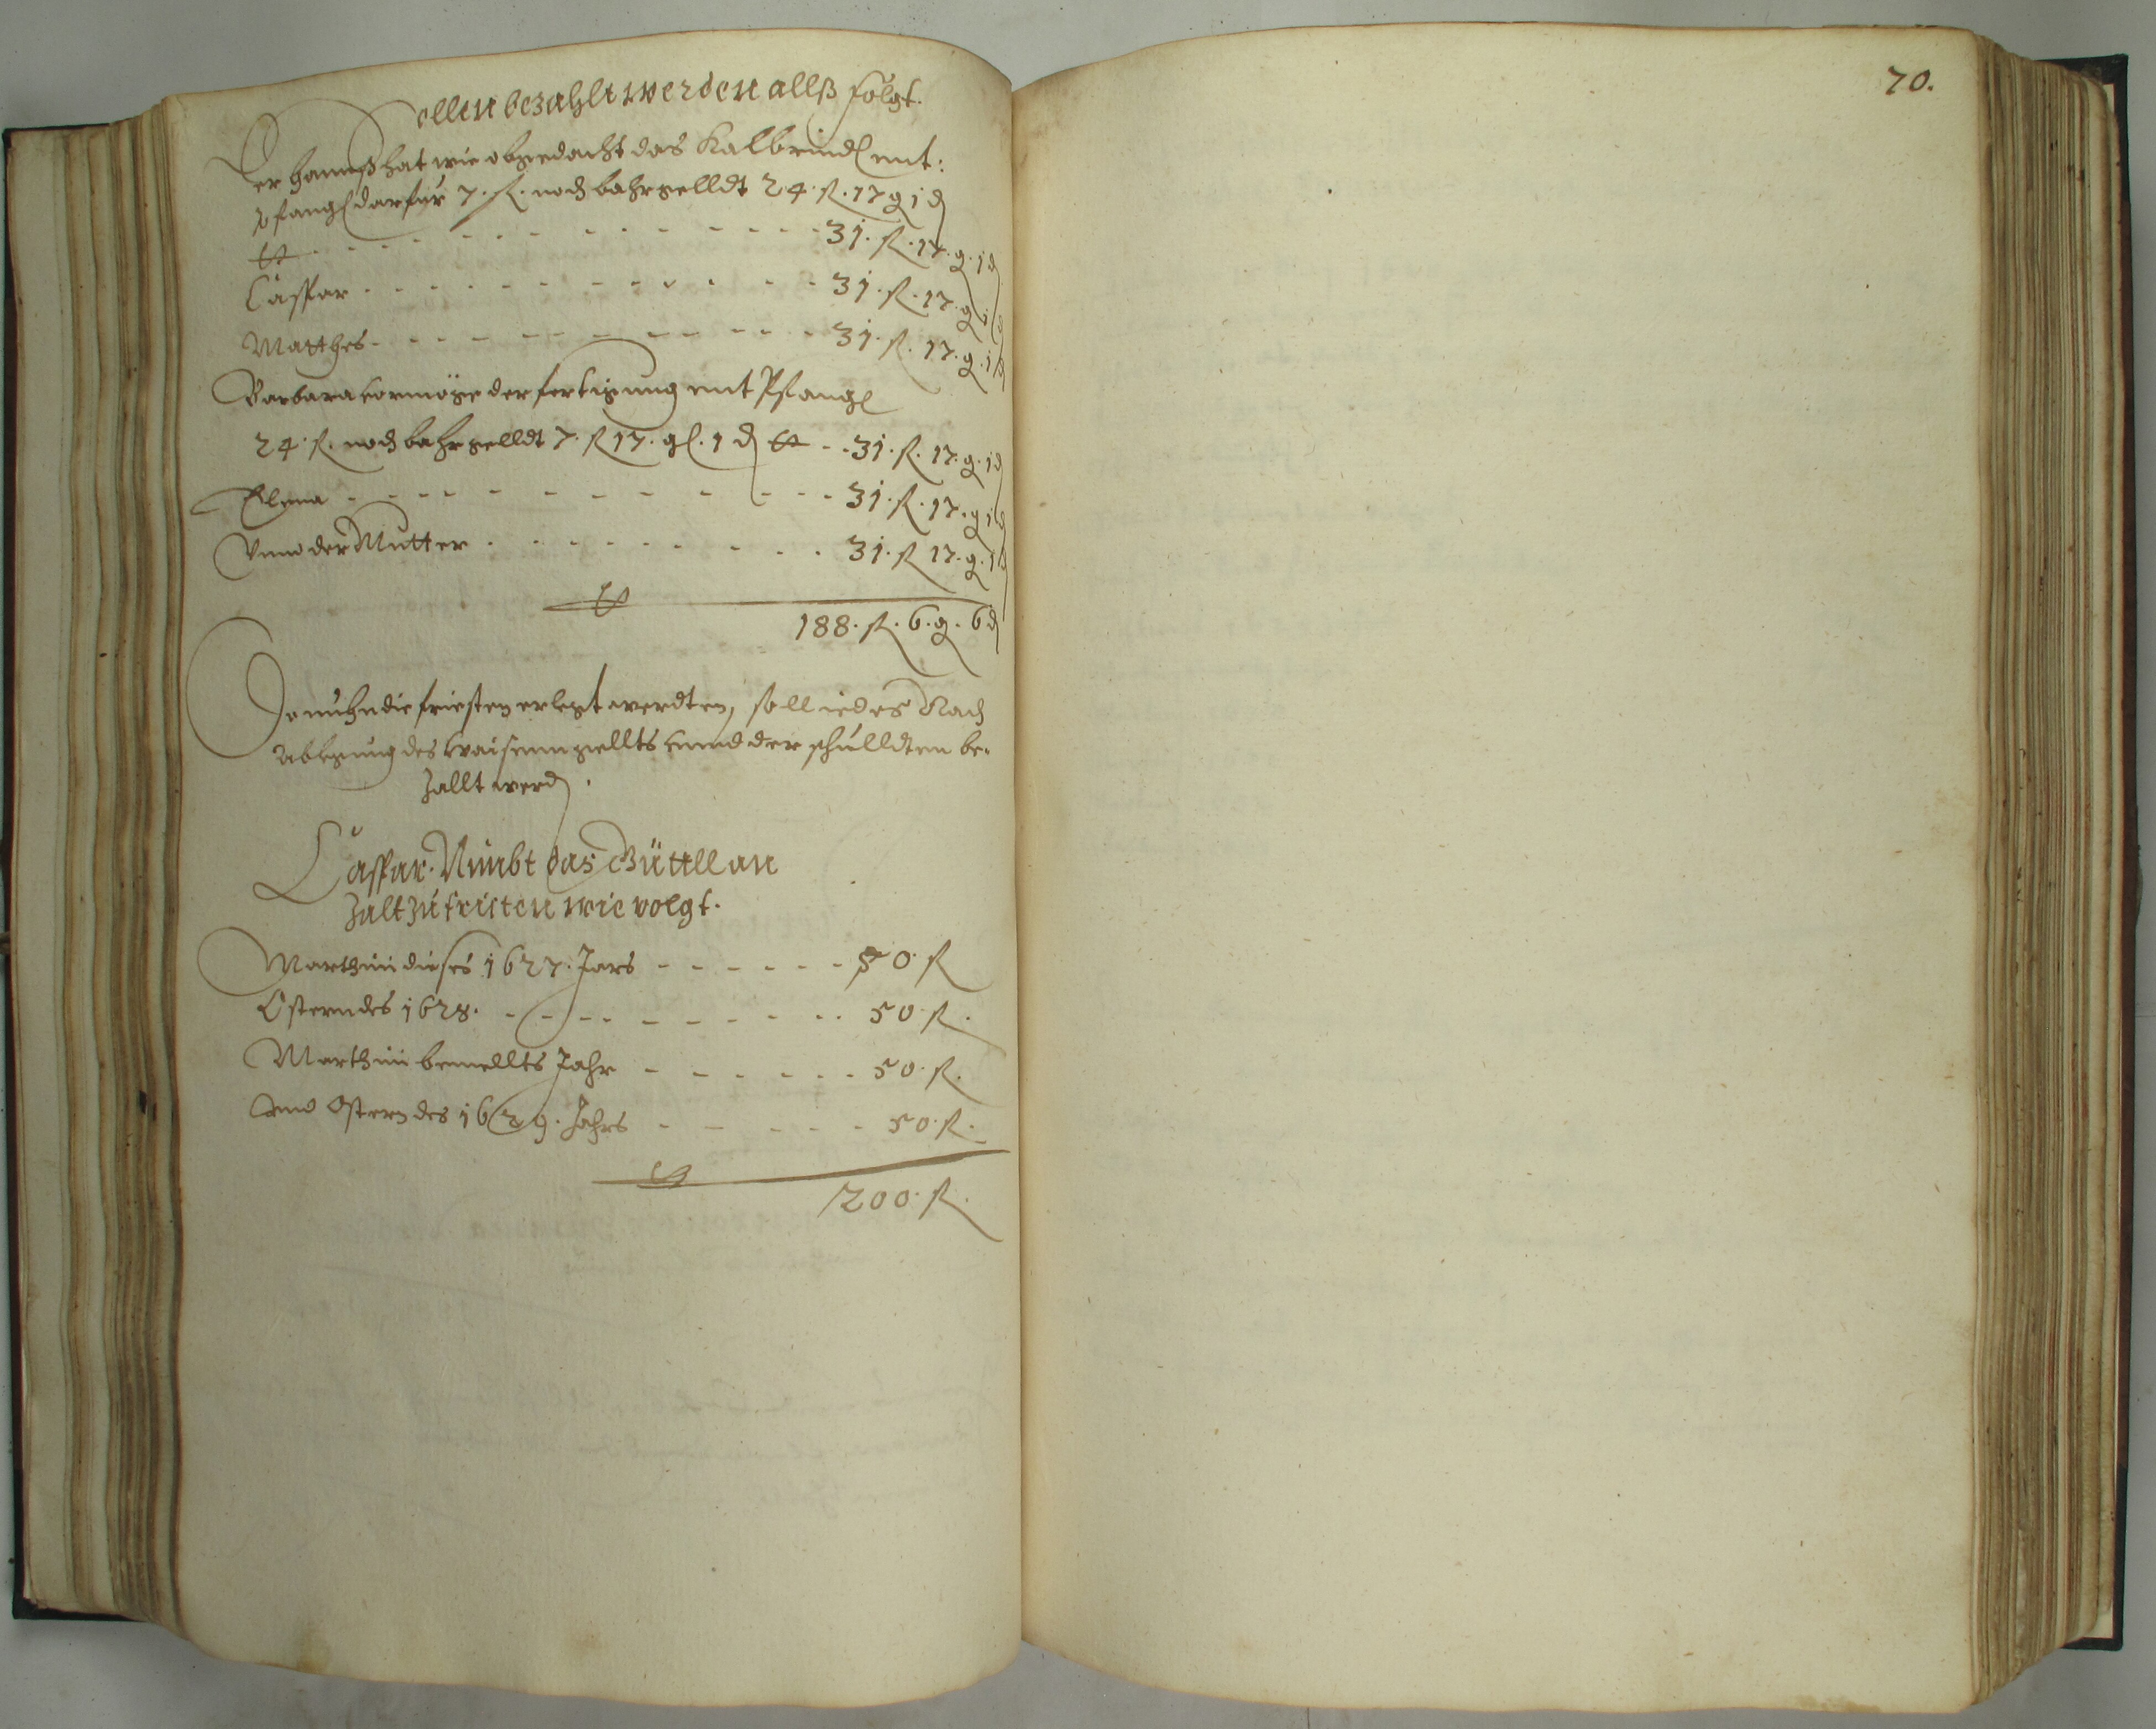 ollen bezahlt werden allß folgt.
Der Hannß hat wie obgedacht das Kalbrindl ent:
pfangl darfür 7. fl. noch bahrgelldt 24. fl. 17 g 1 d
31. fl. 17. g. 1 d
Caspar - - - 31. fl. 17. g 1 d
Matthes - - - 31. fl. 17. g. 1 d
Barbara vormöge der fertigung entpfangl
24. fl. noch bahrgelldt 7. fl 17. gl. 1 d - - 31. fl. 17. g. 1 d
Elena - - - 31. fl. 17. g 1 d
Vnnd der Mutter - - - 31. fl 17. g. 1 d
188. fl. 6. g. 6 d
Do nuhn die friesten erlegt werdten, soll iedes Nach
ablegung des Waisenngellts vnnd der schulldten be-
zallt werd.
Caspar. Nimbt das Güttll an
Zalt zu fristen wie volgt.
Marthini dieses 1627. Jars - - - 50. fl
Ostern des 1628. - - - 50. fl.
Marthini bemellts Jahr - - - 50. fl.
vnnd Ostern des 1629. Jahrs - - - 50. fl.
200. fl.
70.